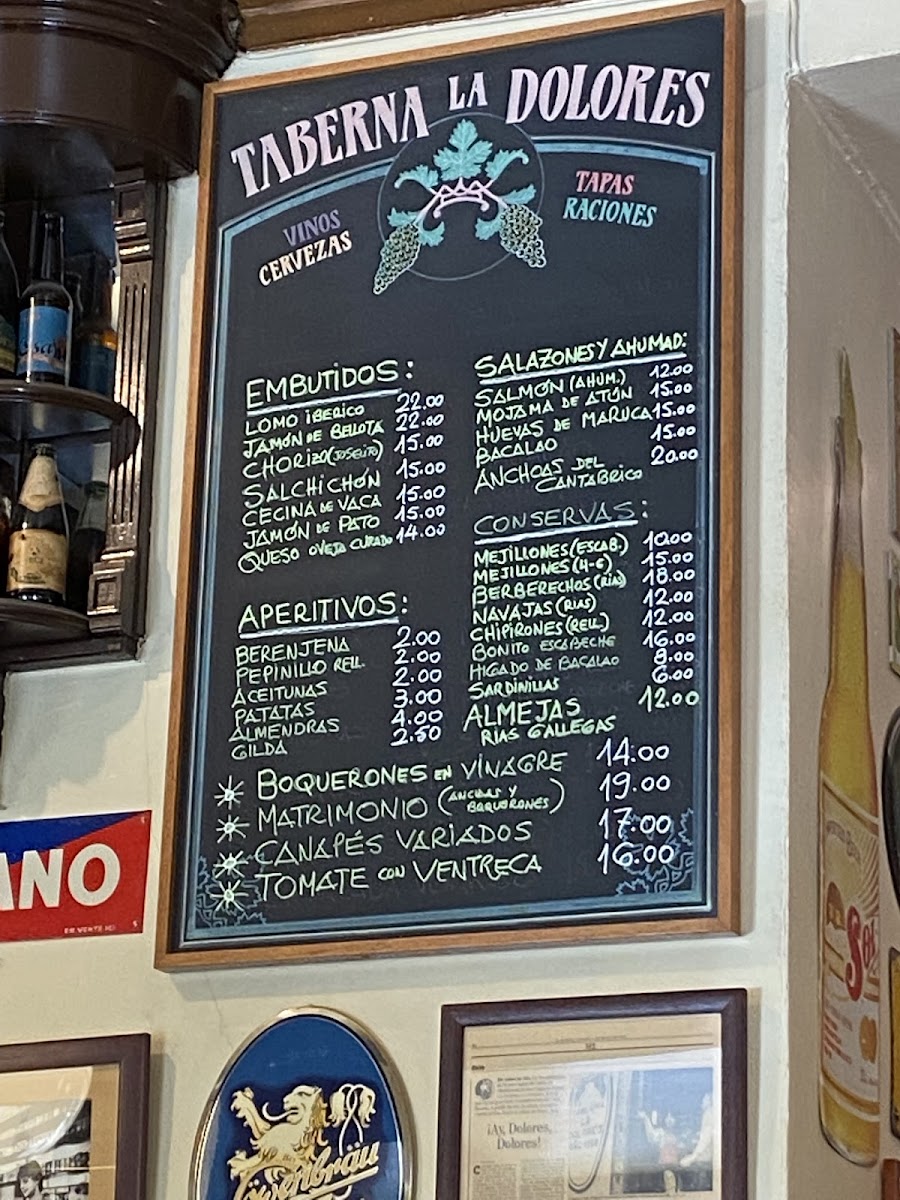 TABERNA LA DOLORES
VINOS
CERVEZAS
TAPAS
RACIONES
EMBUTIDOS:
LOMO IBERICO 22.00
JAMÓN DE BELLOTA 22.00
CHORIZO (JOSELITO) 15.00
SALCHICHÓN 15.00
CECINA DE VACA 15.00
JAMÓN DE PATO 15.00
QUESO OVEJA CURADO 14.00
APERITIVOS:
BERENJENA 2.00
PEPINILLO RELL. 2.00
ACEITUNAS 2.00
PATATAS 3.00
ALMENDRAS 4.00
GILDA 2.50
SALAZONES Y AHUMAD:
SALMÓN (AHUM.) 12.00
MOJAMA DE ATÚN 15.00
HUEVAS DE MARUCA 15.00
BACALAO 15.00
ANCHOAS DEL CANTABRICO 20.00
CONSERVAS:
MEJILLONES (ESCAB.) 10.00
MEJILLONES (4-6) 15.00
BERBERECHOS (RIAS) 18.00
NAVAJAS (RIAS) 12.00
CHIPIRONES (RELL.) 12.00
BONITO ESCABECHE 16.00
HIGADO DE BACALAO 8.00
SARDINILLAS 6.00
ALMEJAS 12.00
RIAS GALLEGAS
BOQUERONES EN VINAGRE 14.00
MATRIMONIO (ANCHOAS Y BOQUERONES) 19.00
CANAPÉS VARIADOS 17.00
TOMATE CON VENTRECA 16.00
ANO
EN VENTE ICI
Löwenbräu
¡Ay, Dolores,
Dolores!
Sol